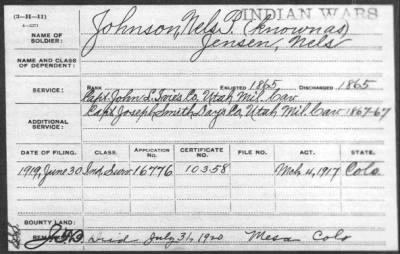 INDIAN WARS
(3-H-11)
NAME OF SOLDIER: Johnson, Nels P. (known as)
Jensen, Nels
NAME AND CLASS OF DEPENDENT:
SERVICE: RANK ENLISTED 1865 DISCHARGED 1865
Capt. John L. Ivie's Co. Utah Mil. Cav.
ADDITIONAL SERVICE: Capt. Joseph Smith Day's Co. Utah Mil. Cav 1867-67
DATE OF FILING. CLASS. APPLICATION NO. CERTIFICATE NO. FILE NO. ACT. STATE.
1919, June 30 Ind. Surv 16776 10358 Mch. 4, 1917 Colo
BOUNTY LAND:
Died July 31, 1920 Mesa Colo